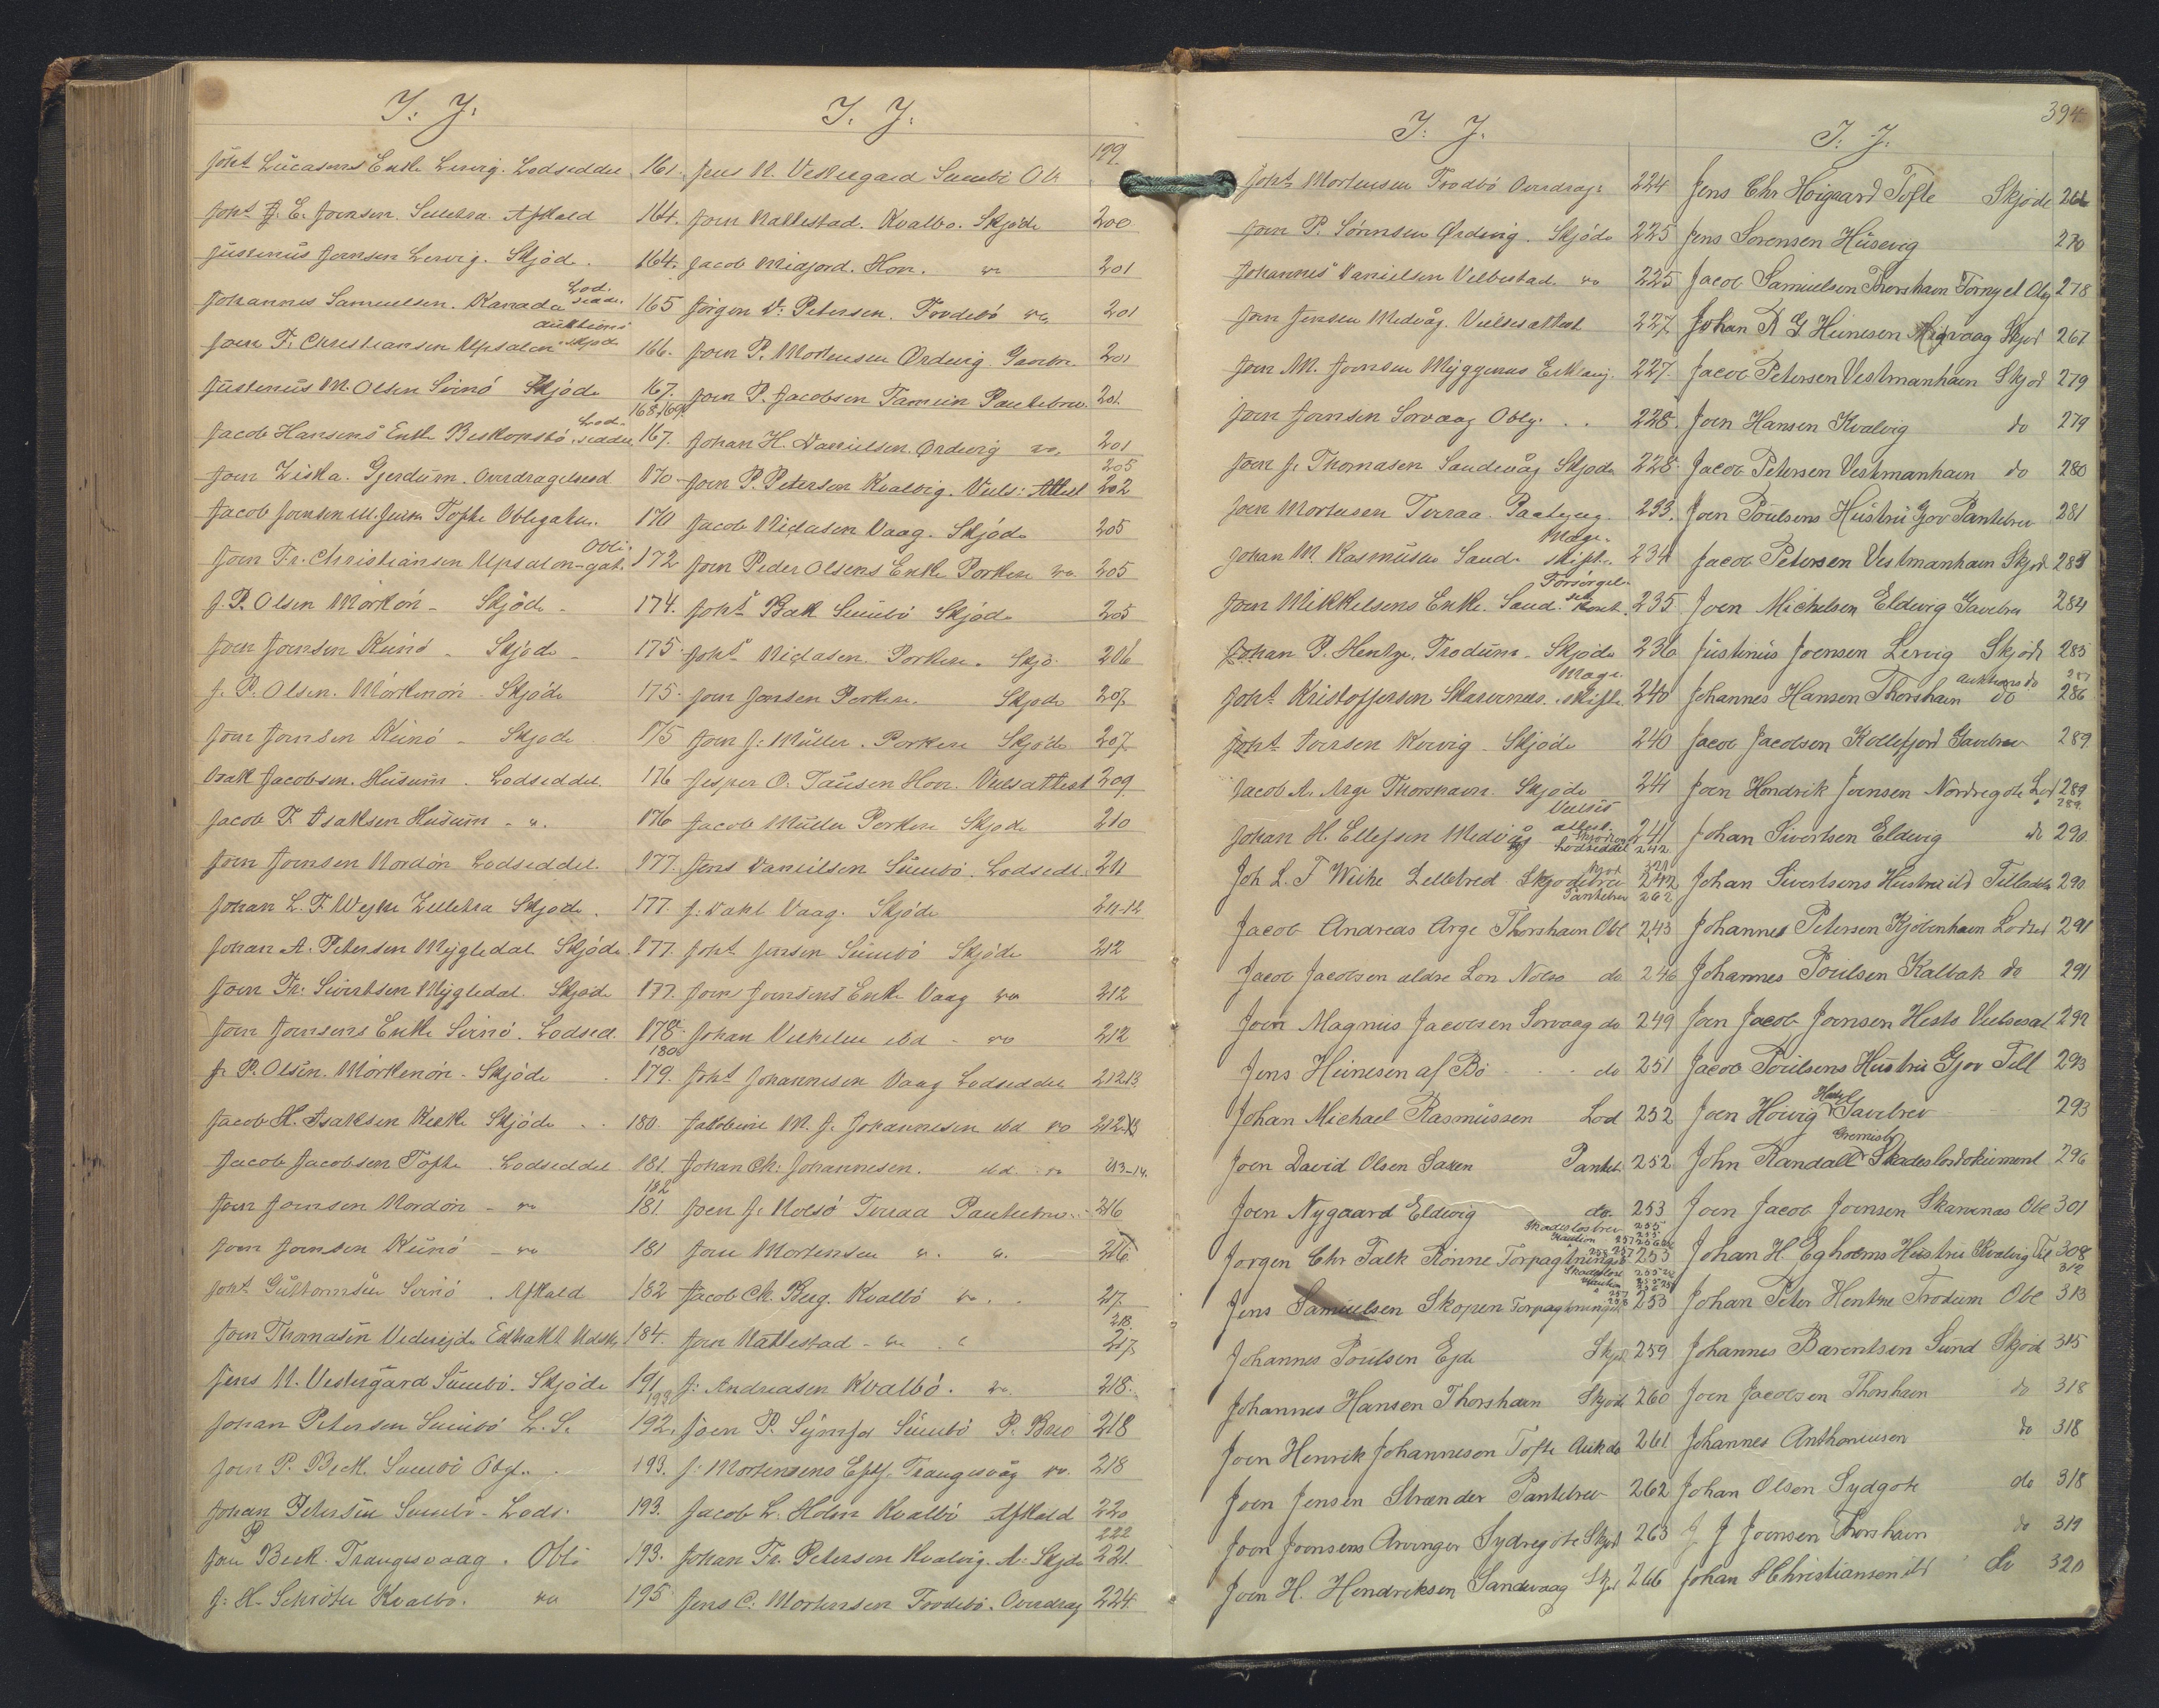 I. J.
Joh.s Lucasens Enke Lervig. Lodseddel 161.
Joh.s J. E. Joensen. Selletra. Afkald 164.
Justinus Joensen Lervig. Skjöde. 164.
Johannes Samuelsen. Kanada Lodseddel 165
Joen F. Christiansen Upsalen auktionsskjöde 166.
Justinus M. Olsen Svinö Skjöde 167.
168.169
Jacob Hansens Enke Biskopstö. Lodseddel 167.
Joen Ziska. Gjerdum. Overdragelsesd 170
Jacob Joensen Tofte Obligation. 170
Joen Fr. Christiansen Upsalon Obligat. 172
J. P. Olsen Mörkön - Skjöde - 174.
Joen Joensen Kunö - Skjöde - 175.
J. P. Olsen. Mörkenön - Skjöde 175.
Joen Joensen Kunö - Skjöde 175
Isak Jacobsen. Husum. Lodseddel. 176
Jacob F. Isaksen Husum - ". 176
Joen Joensen Nordön Lodseddel. 177.
Johan L. F. Weyhe Zelletra Skjöde. 177.
Johan A. Petersen Mygledal Skjöde 177.
Joen Fr. Sivertsen Mygledal. Skjöde 177.
Joen Joensens Enke Svinö. Lodsed. 178.
180
J. P. Olsen. Mörkenön - Skjöde. 179.
Jacob H. Isaksen Kirke Skjöde.. 180.
Jacob Jacobsen Tofte Lodseddel 181.
182
Joen Joensen Nordön - " 181.
Joen Joensen Kunö - " 181
Joh.s Guttormsen Svinö. Afkald 182
Joen Thomasen Vedvejde Extrakt Udsk. 184.
Jens N. Vestergård Sumbö. Skjöde 191
193
Johan Petersen Sumbö L. S. 192.
Joen P. Beck. Sumbö Obl.. 193.
Johan Petersen Sumbö - Lods. 193.
Joen P Beck. Trangisvaag. Obli 193.
J. H. Schröter Kvalbö. " 195
I. J.
199.
Jens N. Vestergaard Sumbö Ob.
Joen Nattestad. Kvalbö. Skjöde 200.
Jacob Midjord. Hov. " 201
Jörgen D. Petersen. Frodebö " 201
Joen P. Mortensen Ördevig. Gavebr. 201
Joen P. Jacobsen Famien Pantebrev. 201.
Johan H. Danielsen. Ördevig " 201
205
Joen P. Petersen Kvalvig. Viels: Attest 202
Jacob Niclasen Vaag. Skjöde 205
Joen Peder Olsens Enke Porkere " 205
Joh.s Bak Sumbö Skjöde 205
Joh.s Niclasen. Porkere. Skjö. 206
Joen Jensen Porkere. Skjöde 207
Joen J. Müller. Porkere Skjöde 207.
Jesper O. Tausen Hov. Vielsattest 209
Jacob Müller Porkere Skjöde 210
Jens Danielsen Sumbö. Lodsedl. 211
J. Dahl Vaag. Skjöde 211-12
Joh.s Jensen Sumbö Skjöde 212
Joen Joensens Enke Vaag " 212
Johan Vilhelm ibd - " 212
Joh.s Johannesen Vaag Lodseddel 212.13
Jakobine M. J. Johannesen ibd " 212.13
Johan Ch. Johannesen. ibd. " 213-14.
Joen J. Nolsö Tveraa Pantebrev.. 216
Joen Mortensen ". ". 216
Jacob Ch. Berg. Kvalbö ".. 217.
218.
Joen Nattestad - ". " 217
J. Andreasen Kvalbö. ". 218.
Joen P. Symfor Sumbö P. Brev 218
J. Mortensens Eftf. Trangisvåg ". 218
Jacob L. Holm Kvalbö Afkald 220
222
Johan Fr. Petersen Kvalvig. A. Skjde 221
Jens C. Mortensen Frodebö. Overdrag 224.
394.
I. J.
Joh.s Mortensen Frodbö Overdrag. 224
Joen P. Sörensen Ördevig. Skjöde 225
Johannes Danielsen Velbestad. " 225
Joen Jensen Midvåg. Vielsesattest 227.
Joen M. Joensen Myggenæs Erklæring. 227.
Joen Joensen Sorvaag Oblg... 228.
Joen J. Thomasen Sandevåg Skjöde 228.
Joen Mortensen Tveraa. Paategn. 233.
Johan M. Rasmussen Sand. Mageskifte. 234
Joen Mikkelsens Enke. Sand. Forsörgelses Kont. 235
Johan P. Hentze. Frodum. Skjöde 236
Joh.s Kristoffersen Skarvenæs. Mageskifte. 240
Joh.s Iversen Korvig - Skjöde 240
Jacob A. Arge Thorshavn. Skjöde 241
Johan H. Ellefsen Midvåg Vielses attest. Skjöde og Lodseddel 241 242
Joh L. F Weihe Selletred Skjödebrev 242
Skjöd 320
Pantebrev 262
Jacob Andreas Arge Thorshavn Obl 243
Jacob Jacobsen ældre Lon Nolso do 246
Joen Magnus Jacobsen Sorvaag do 249
Jens Heinesen af Bö - - - do 251
Johan Michael Rasmussen Lod 252
Joen David Olsen Saxen Panteb. 252
Joen Nygaard Eldevig do. 253
Skadeslosbrev 255
Kaution 257
Jorgen Chr Falk Rönne Forpagtningsk. 253
Skadeslos 255
Kaution
Jens Samuelsen Skopen Forpagtningsk 253
Johannes Poulsen Ejde Skjd. 259
Johannes Hansen Thorshavn Skjöde 260
Joen Henrik Johanneson Tofte Auk do 261
Joen Jensen Strænder Pantebrev 262
Joen Joensens Arvinger Sydregote Skjd 263
Joen H. Hendriksen Sandvaag Skjd 266
I. J.
Jens Chr Hoigaard Tofte Skjöde 266
Jens Sorensen Húsevig 270
Jacob Samuelsen Thorshavn Fornyet Obg 278
Johan R G Heinesen Migvaag Skjod 267
Jacob Petersen Vestmanhavn Skjod 279
Joen Hansen Kvalvig do 279
Jacob Petersen Vestmanhavn do 280
Joen Poulsens Hustru Gjov Pantebrev 281
Jacob Petersen Vestmanhavn Skjod 283
Joen Michelsen Eldevig Gavebrev 284
Justinus Joensen Lervig Skjodt 285
auktions do 287
Johannes Hansen Thorshavn do 286
Jacob Jacobsen Kollefjord Gavebrev 289
Joen Hendrik Joensen Nordregote Lod 289
289.
Johan Sivertsen Eldevig do 290.
Johan Sivertsens Hustru ild Tilladelse 290
Johannes Petersen Kjöbenhavn Lodsed 291
Johannes Poulsen Kalbak do 291
Joen Jacob Joensen Hesto Vielsesat 292
Jacob Poulsens Hustru Gjov Till 293
Joen Hoivig Gavebrev 293
John Randall Gremisby Skadeslosdokument 296
Joen Jacob Joensen Skarvenes Obl 301
Johan H Egholms Hustru Kvalvig Til 308
312
Johan Peter Hentze Frodum Obl 313
Johannes Barentsen Sund Skjod 315
Joen Jacobsen Thorshavn do 318
Johannes Anthoniusen do 318
Johan Olsen Sydgote do 318
J J Joensen Thorshavn do 319
Johan S Christiansen ibd do 320